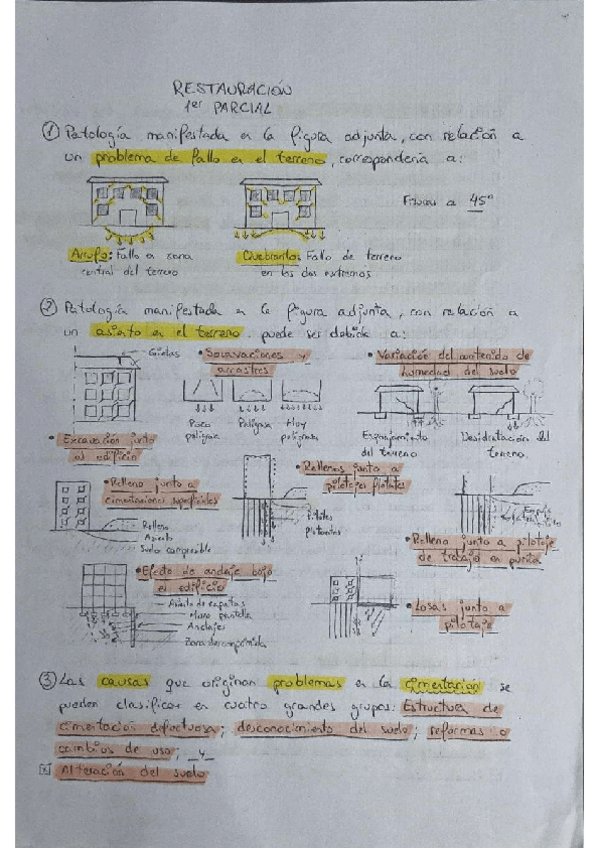 RESTAURACIÓN
1er PARCIAL
① Patología manifestada en la figura adjunta, con relación a
un problema de fallo en el terreno, correspondería a:
Fisuras a 45º
Arrufo: Fallo en zona
central del terreno
Quebranto: Fallo de terreno
en los dos extremos
② Patología manifestada en la figura adjunta, con relación a
un asiento en el terreno, puede ser debida a:
Grietas
• Excavación junto
al edificio
• Socavaciones y
arrastres
Poco
peligrosa
Peligrosa
Muy
peligrosa
• Variación del contenido de
humedad del suelo
Esponjamiento
del terreno
Desidratación del
terreno.
• Relleno junto a
cimentaciones superficiales
Relleno
Asiento
Suelo compresible
• Rellenos junto a
pilotajes flotantes
Pilotes
flotantes
Empuje
• Relleno junto a pilotaje
de trabajo en punta
• Efecto de anclaje bajo
el edificio
Asiento de zapatas
Muro pantalla
Anclajes
Zona descomprimida
• Losas junto a
pilotaje
③ Las causas que originan problemas en la cimentación se
pueden clasificar en cuatro grandes grupos: Estructura de
cimentación defectuosa; desconocimiento del suelo; reformas o
cambios de uso; _y_
Alteración del suelo